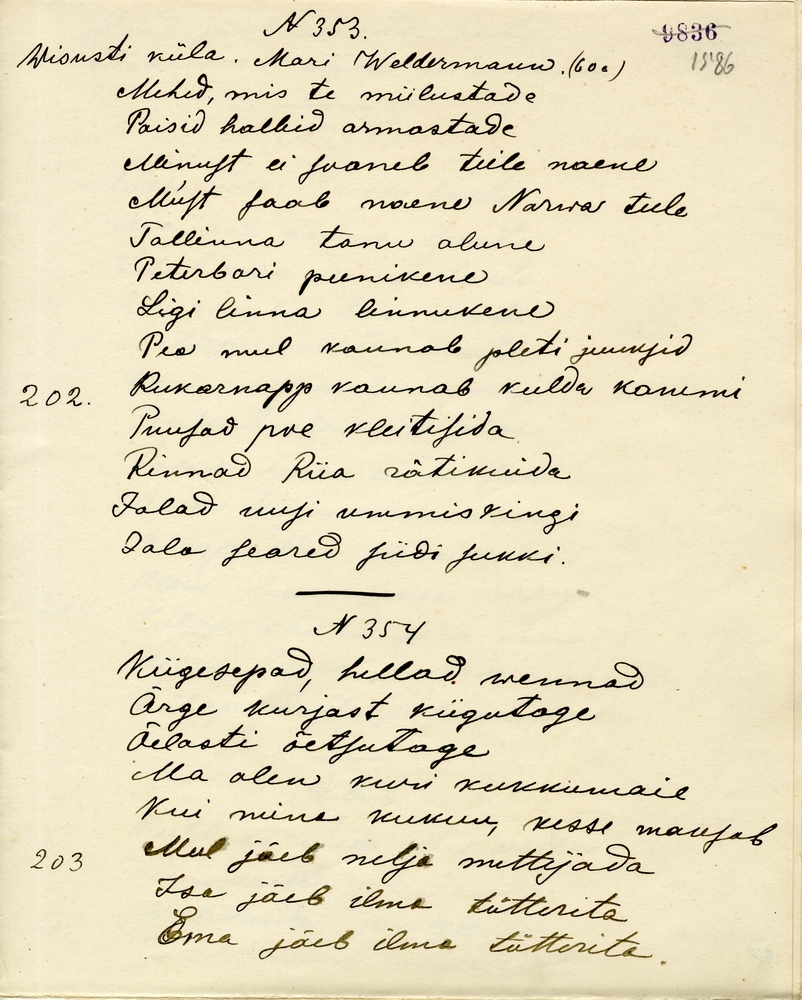 N 353.
9836
1586
Wisusti küla. Mari Weldermann. (60 a)
Mehed, mis te miilustade
Poisid hallid armastade
Minust ei saaneb teile naene
Must saab naene Narwa teele
Tallinna tanu alune
Peterbori peenikene
Ligi linna linnukene
Pea mul kannab pleti juuksid
202.
Kukarnapp kannab kulda kammi
Puusad poe kleitisida
Rinnad Riia rätikuida
Jalad uusi ummiskingi
Jala seared siidi sukki.
N 354
Kiigesepad, hellad wennad
Ärge kurjast kiigutage
Õelasti õetsutage
Ma olen kuri kukkumaie
Kui mina kukun, kesse maksab
203
Mul jäeb nelja nuttijada
Isa jäeb ilma tütterita
Ema jäeb ilma tütterita.